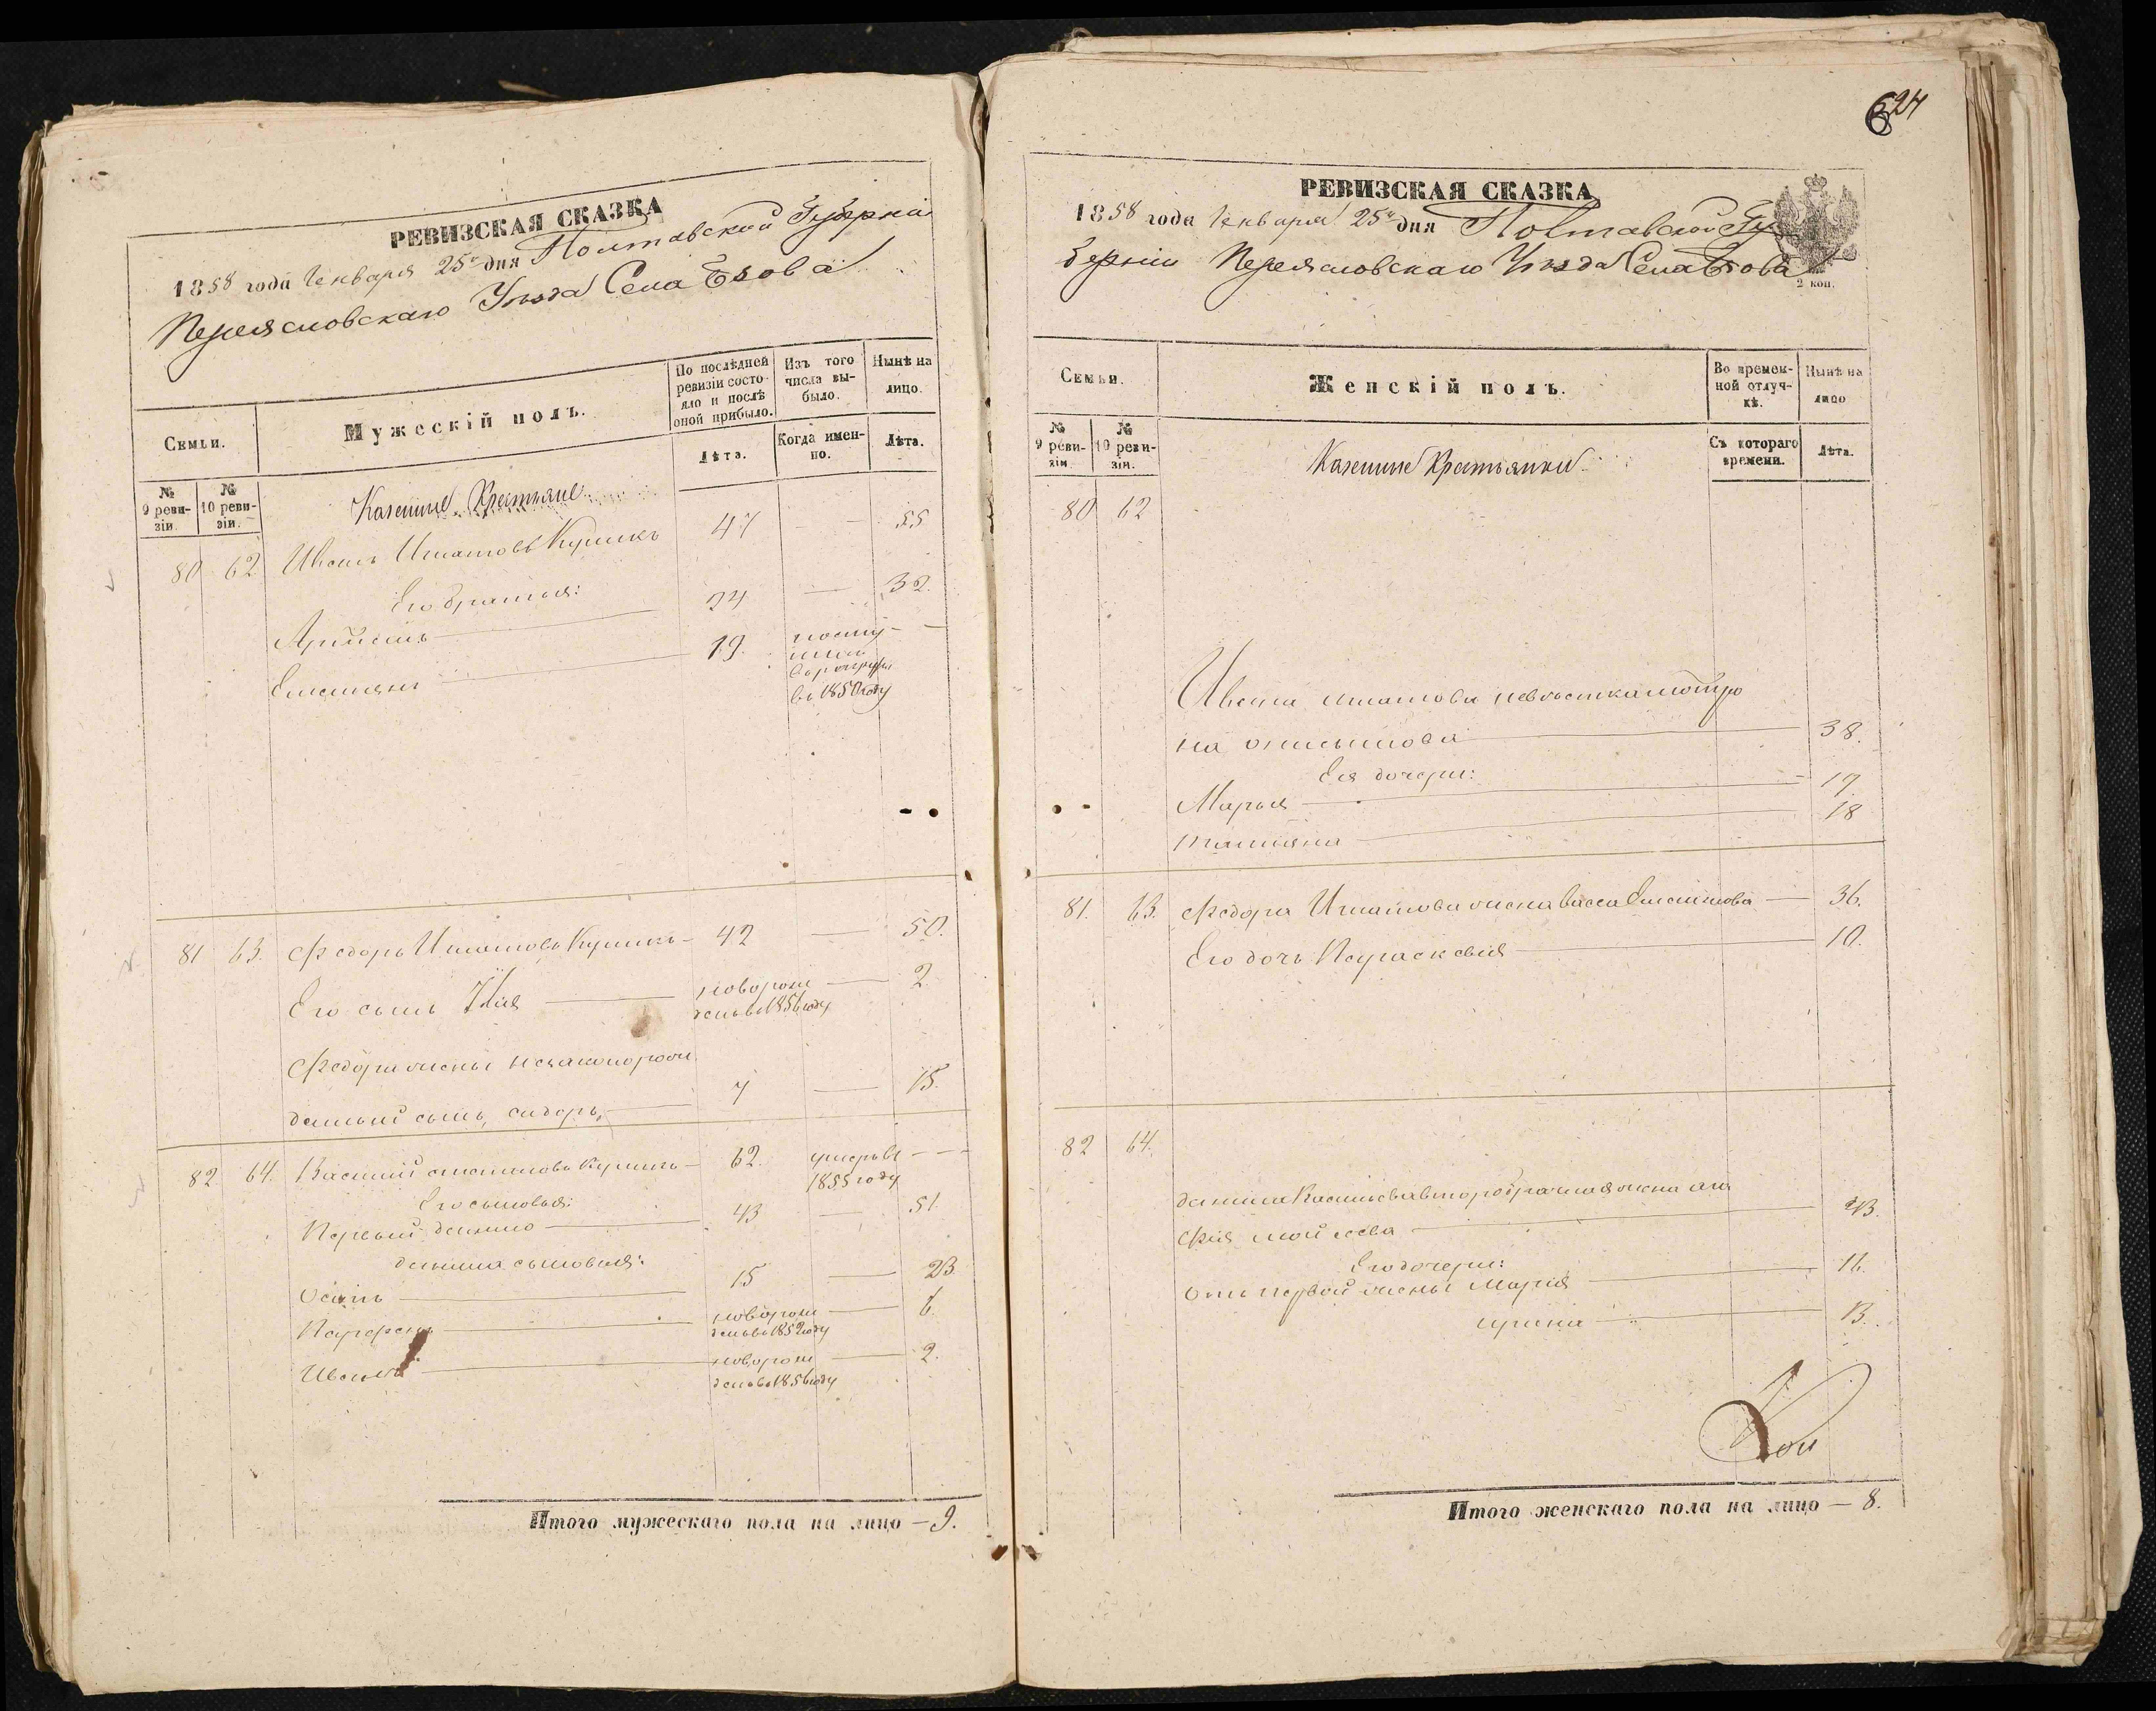 РЕВИЗСКАЯ СКАЗКА
1858 года Генваря 25го дня Полтавской Губерніи
Переясловскаго Уѣзда Села
Семьи.
Мужескій полъ.
По послѣдней ревизіи состояло и послѣ оной прибыло.
Изъ того числа выбыло.
Нынѣ на лицо.
№ 9 ревизіи.
№ 10 ревизіи.
Лѣта.
Когда именно.
Лѣта.
Казенные Крестьяне
80 62 Иванъ Игнатовъ 47 — 55
Его братья:
24 — 32.
Емельянъ 19. посту-
въ 1850 году
81 63. Федоръ Игнатовъ 42 — 50.
Его сынъ Илія новорож — 2
денъ въ 1856 году
Федора жены незаконорож
денный сынъ, сидоръ, 7 — 15.
82 64. Василий 62. умеръ въ - - -
1855 году
Его сыновья:
Первый данило 43 — 51.
данила сыновья:
Осипъ 15 — 23
новорож — 6.
денъ въ 1852 году
Иванъ новорож — 2.
денъ въ 1856 году
Итого мужескаго пола на лицо — 9.
624
РЕВИЗСКАЯ СКАЗКА
1858 года Генваря 25го дня Полтавской Гу
берніи Переясловскаго Уѣзда Села
2 коп.
Семьи.
Женскій полъ.
Во временной отлучкѣ.
Нынѣ на лицо
№ 9 ревизіи.
№ 10 ревизіи.
Съ котораго времени.
Лѣта.
Казенные Крестьянки
80 62
Ивана Игнатова невѣстка
на 38.
Ея дочери:
Марья — 19
татіяна 18
81. 63. Федора Игнатова жена Васса — 36.
Его дочь Параскевія 10.
82 64.
данила Васильева второбрачная жена
43.
Его дочери:
отъ первой жены Марія — 16.
ирина — 13.
Итого женскаго пола на лицо — 8.